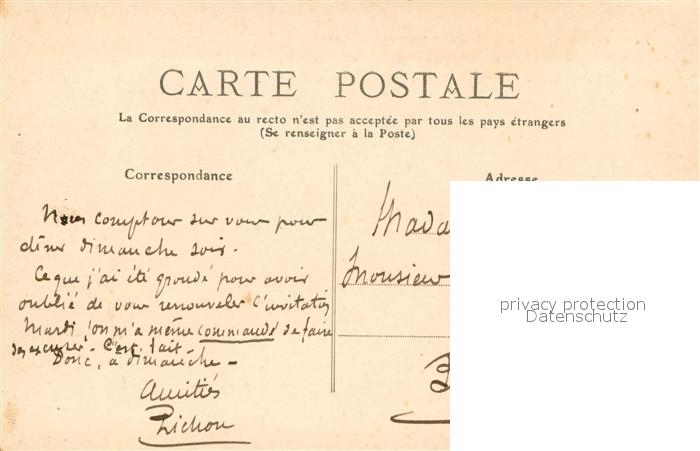 CARTE POSTALE
La Correspondance au recto n'est pas acceptée par tous les pays étrangers
(Se renseigner à la Poste)
Correspondance
Adresse
Nous comptons sur vous pour
dîner dimanche soir.
Ce que j'ai été grondé pour avoir
oublié de vous renouveler l'invitation
Mardi, on m'a même commandé de faire
des excuses. C'est fait.
Donc, à dimanche -
Amitiés
Mada
Monsieur
privacy protection
Datenschutz